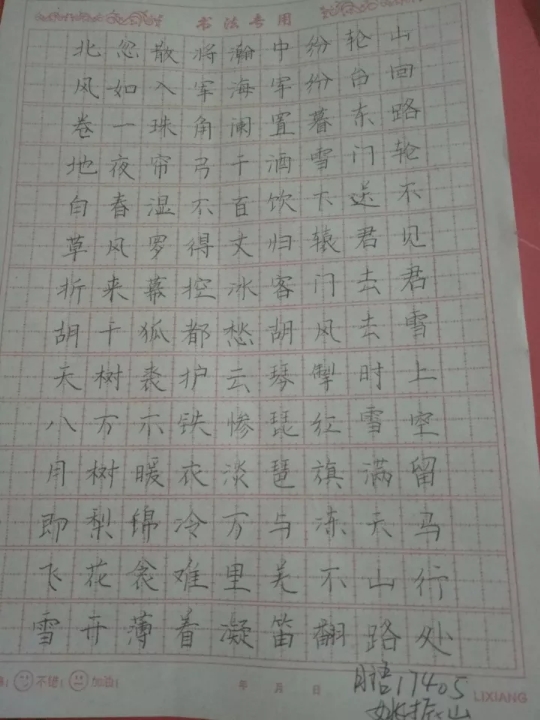 书法专用
北风卷地白草折胡天八月即飞雪
忽如一夜春风来千树万树梨花开
散入珠帘湿罗幕狐裘不暖锦衾薄
将军角弓不得控都护铁衣冷难着
瀚海阑干百丈冰愁云惨淡万里凝
中军置酒饮归客胡琴琵琶与羌笛
纷纷暮雪下辕门风掣红旗冻不翻
轮台东门送君去去时雪满天山路
山回路轮不见君雪上空留马行处
不错: 加油: 年 月 日 LIXIANG
17405